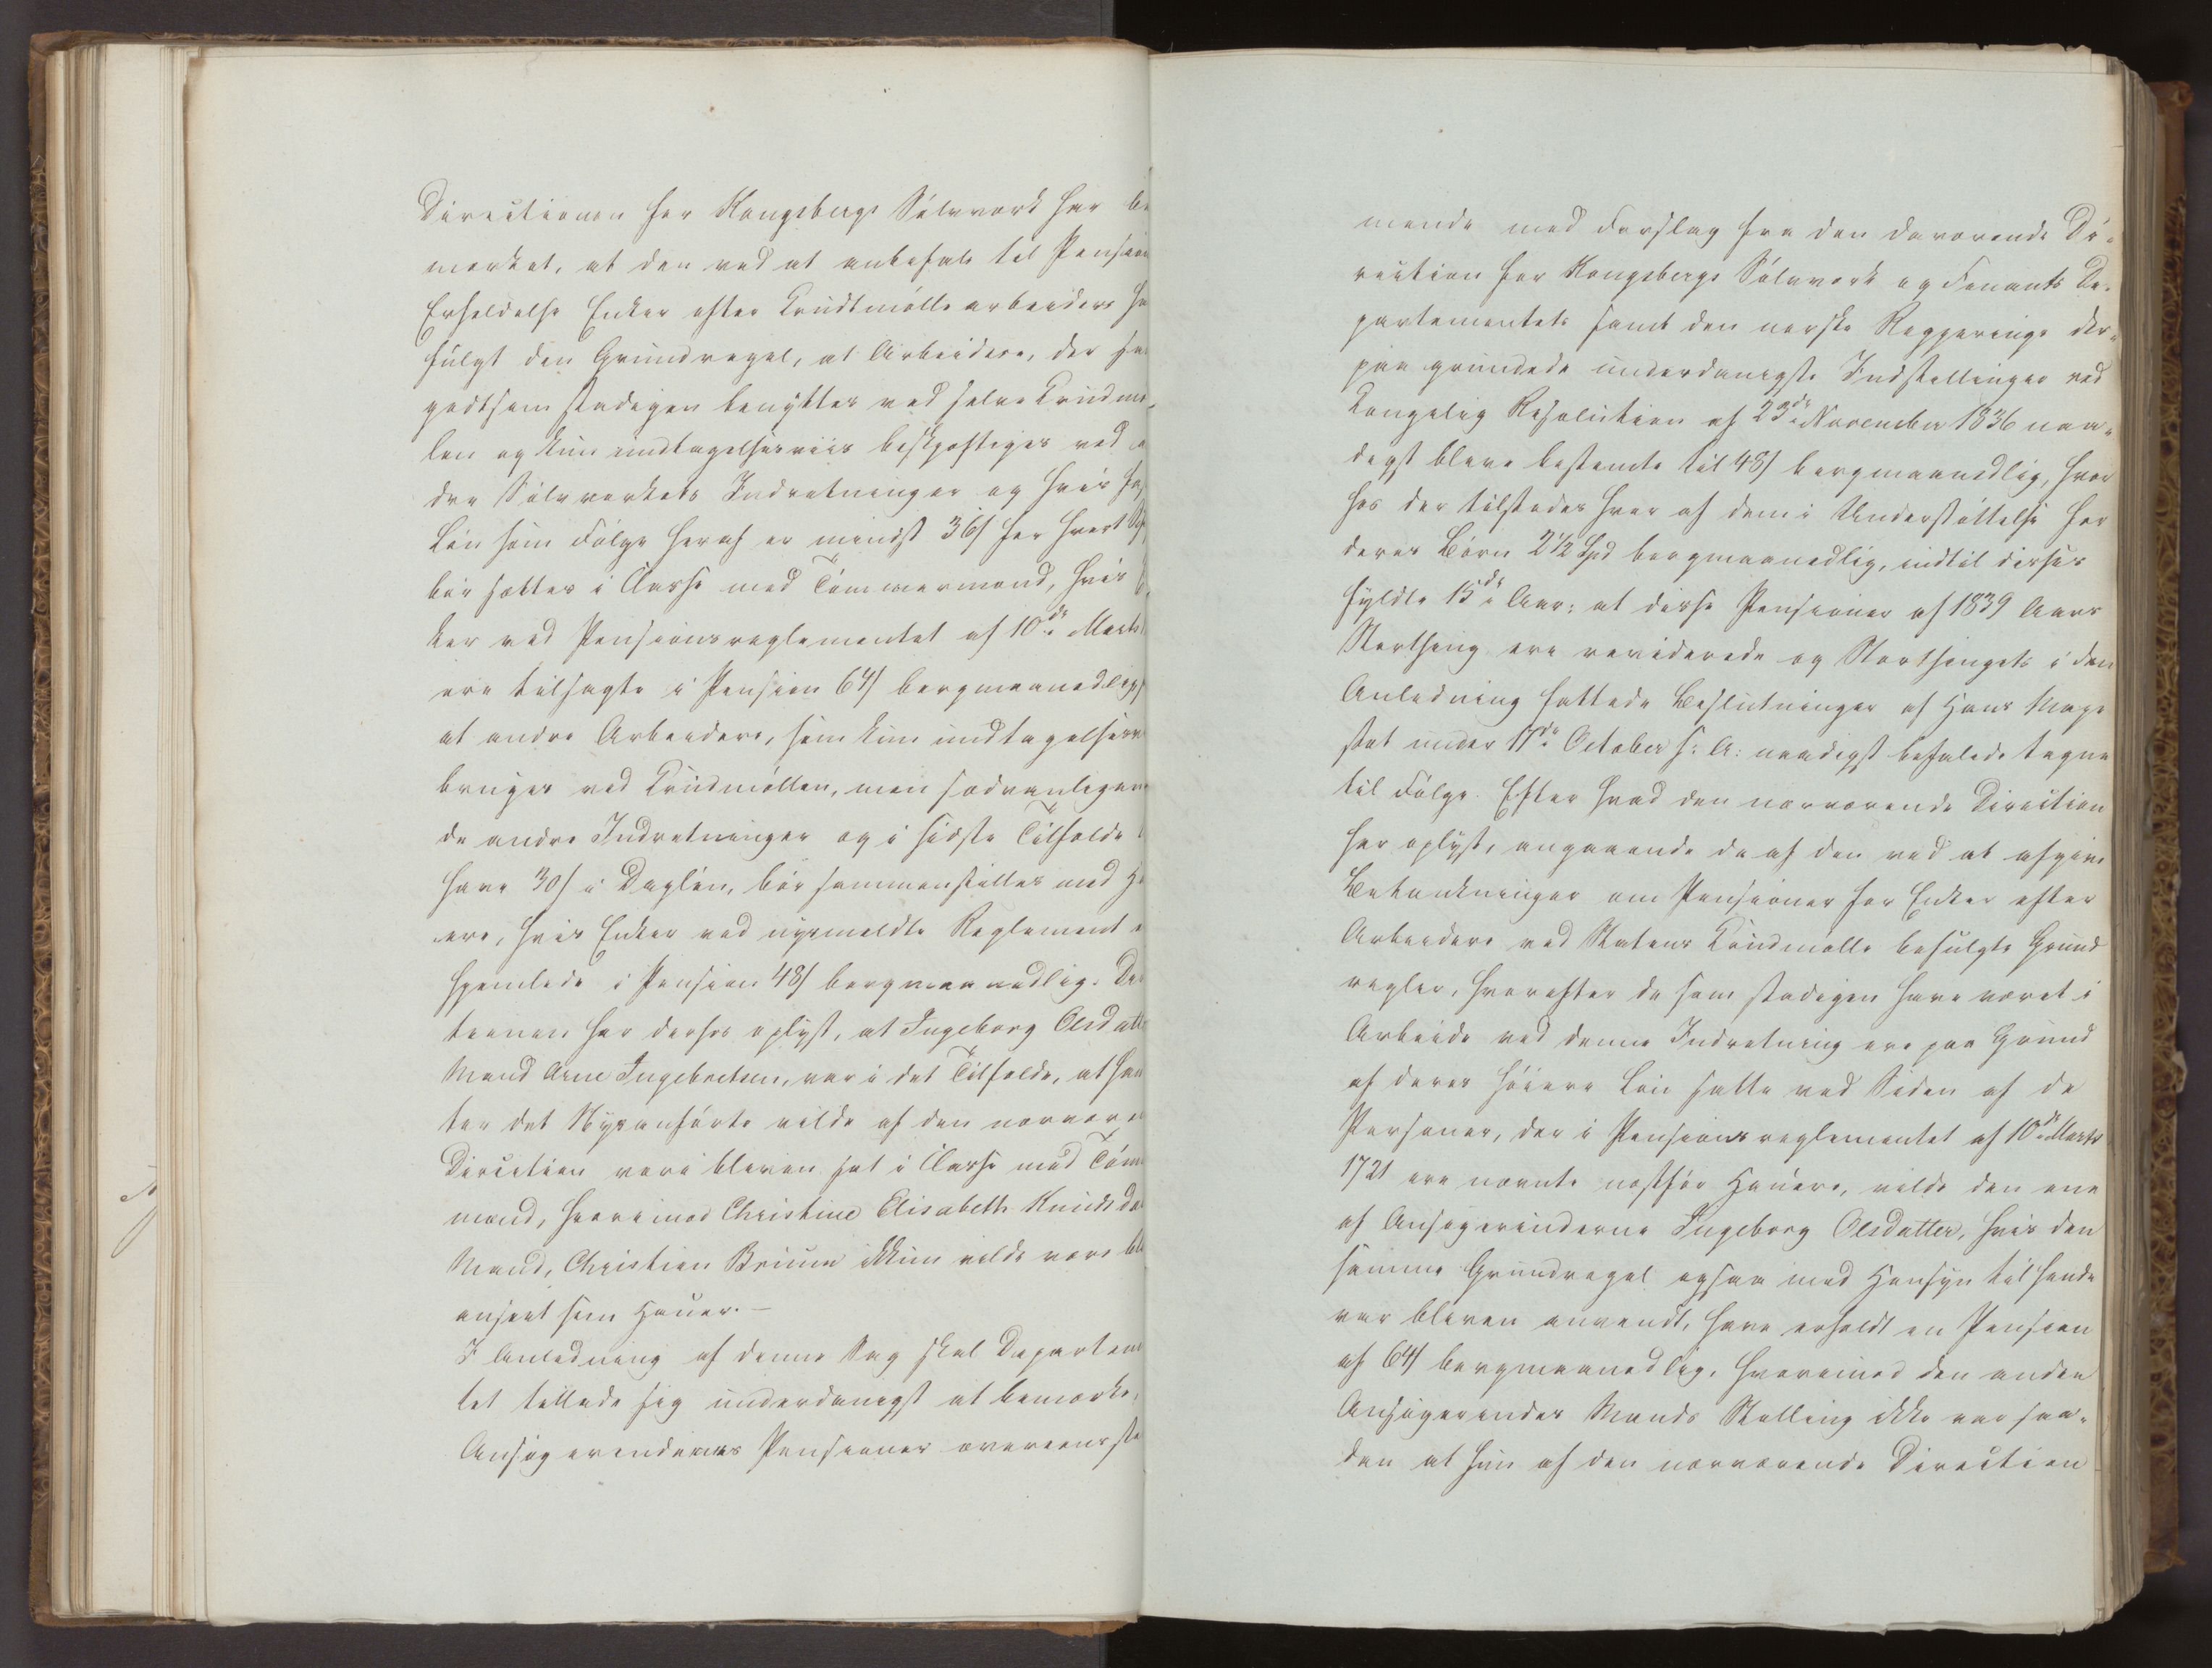 Directionen for Kongsbergs Sölvværk har be
mærket, at den ved at anbefale til Pension
Erholdelse Enker efter Krudtmöllearbeidere ha
fulgt den Grundregel, at Arbeidere, der saa
godtsom stadigen benyttes ved selve Krudmö
len og kun undtagelsesviis beskjæftiges ved a
dre Sölvværkets Indretninger og hvis hø
Lön som Fölge heraf er mindst 36 s for hvert
bör sættes i Classe med Tömmermænd, hvis E
ker ved Pensionsreglementet af 10de Marts
ere tilsagte i Pension 64 s bergmaanedlig,
at andre Arbeidere, som kun undtagelsesv
bruges ved Krudmöllen, men sædvanligen v
de andre Indretninger og i sidste Tilfælde
have 30 s i Daglön, bör sammenstilles med H
ere, hvis Enker ved nysmeldte Reglement e
hjemlede i Pension 48 s bergmaanedlig. De
tionen har derhos oplyst, at Ingeborg Olsdatt
Mand Arne Ingebretsen, var i det Tilfælde, at han
ter det Nysanförte vilde af den nærvære
Direction være bleven sat i Classe med Töm
mænd, hvorimod Christine Elisabeth Knuds da
Mand, Christian Bruun ikkun vilde være bl
anseet som Hauer. —
I Anledning af denne Sag skal Departem
tet tillade sig underdanigst at bemærke,
Ansögerindernes Pensioner overeensste
mende med Forslag fra den daværende Di-
rection for Kongsbergs Sölvværk og Finants De-
partementets samt den norske Regjerings der-
paa grundede underdanigste Indstillinger ved
Kongelig Resolution af 23de November 1836 naa-
digst bleve bestemte til 48 s bergmaanedlig, hvor
hos der tilstodes hver af dem i Understöttelse for
deres Börn 2 1/2 Spd bergmaanedlig, indtil disses
fyldte 15de Aar: at disse Pensioner af 1839 Aars
Storthing ere reviderede og Storthingets i den
Anledning fattede Beslutninger af Hans Maje
stæt under 17de October s: A: naadigst befalede tagne
til Fölge. Efter hvad den nærværende Direction
har oplyst, angaaende de af den ved at afgive
Betænkninger om Pensioner for Enker efter
Arbeidere ved Statens Krudmölle befulgte Grund
regler, hvorefter de som stadigen have været i
Arbeide ved denne Indretning ere paa Grund
af deres höiere Lön satte ved Siden af de
Personer, der i Pensionsreglementet af 10de Marts
1721 ere nævnte næstför Hauere, vilde den ene
af Ansögerinderne Ingeborg Olsdatter, hvis den
samme Grundregel ogsaa med Hensyn til hende
var bleven anvendt, have erholdt en Pension
af 64 s bergmaanedlig, hvorimod den anden
Ansögerindes Mands Stilling ikke var saa-
dan at hun af den nærværende Direction